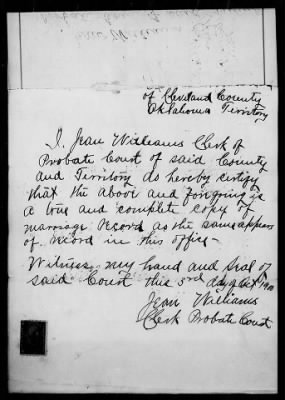 of Cleveland County
Oklahoma Territory
I, Jean Williams Clerk of
Probate Court of said County
and Territory do hereby certify
that the above and foregoing is
a true and complete copy of
marriage record as the same appears
of record in this office-
Witness my hand and seal of
said Court this 3rd day of Oct
Jean Williams
Clerk Probate Court